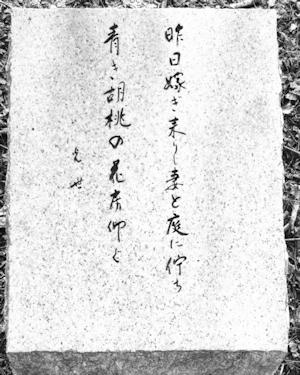 昨日嫁ぎ来りし妻と庭に佇ち
青き胡桃の花房仰ぐ
光世